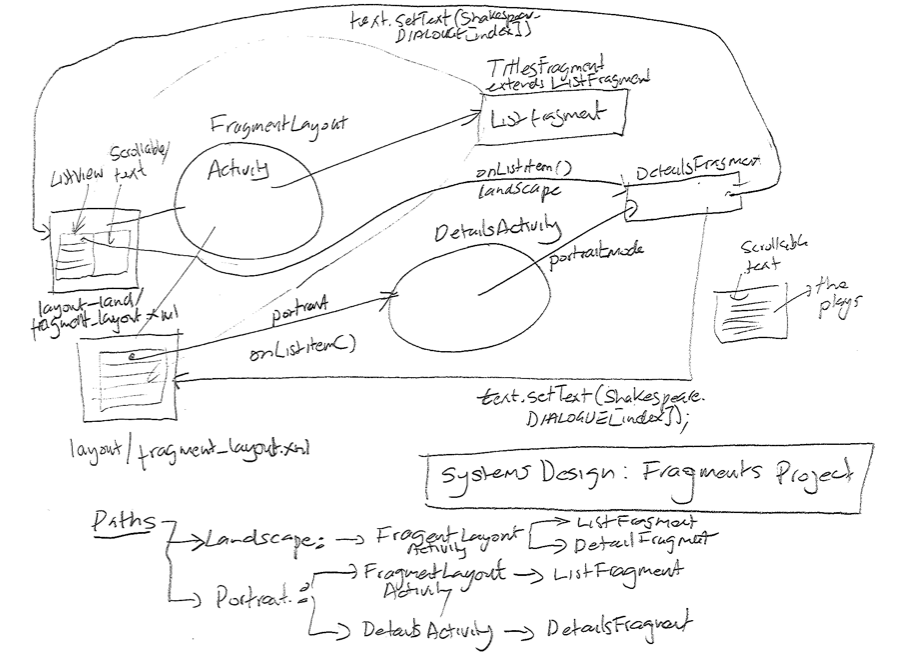 text.setText(Shakespeare.
DIALOGUE[index])
TitlesFragment
extends ListFragment
ListFragment
FragmentLayout
Activity
ListView
Scrollable/
text
onListItem()
landscape
DetailsFragment
DetailsActivity
portraitmode
Scrollable
text
the
plays
layout-land/
fragment_layout.xml
portrait
onListItem()
text.setText(Shakespeare.
DIALOGUE[index]);
layout/fragment_layout.xml
Systems Design: Fragments Project
Paths
Landscape: → FragentLayout
Activity
ListFragment
DetailFragment
Portrait:
FragmentLayout → ListFragment
Activity
DetailsActivity → DetailsFragment